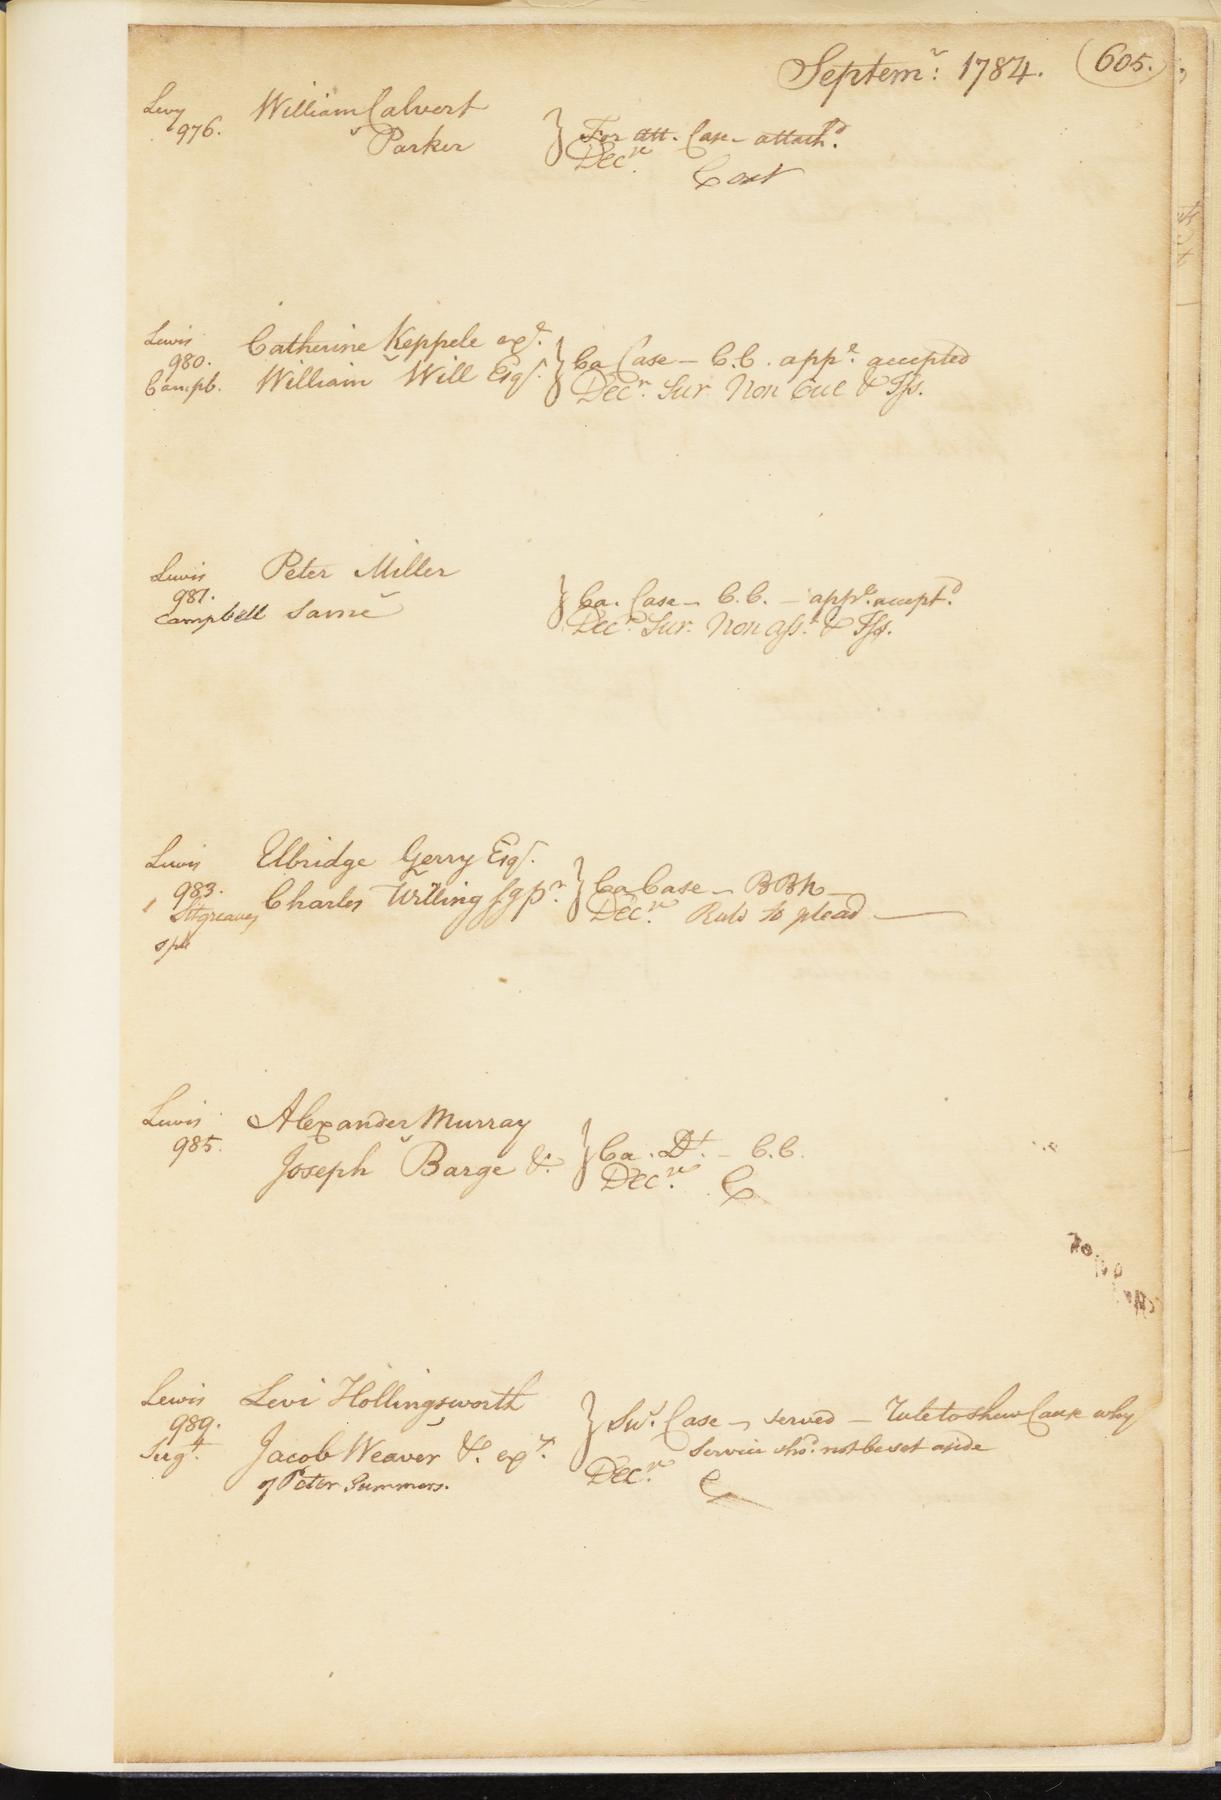 Septem.r 1784. (605.)
Levy William Calvert
976. v Parker } For att. Case – attach.d
Dec.n Cont
Lewis Catherine Keppele ex.x
980. v } Ca Case – C.C. app.e accepted
Campb. William Will Esq.r Dec.n Sur Non Cul & Iss.
Lewis Peter Miller
981. v } Ca. Case – C.C. – app.e accept.d
Campbell Same Dec.n Sur. Non Ass.t & Iss.
Lewis Elbridge Gerry Esq.r
983. v } Ca Case – BBk
Sitgreaves Charles Willing Dec.n Rule to plead
Lewis Alexander Murray
985. v } Ca. Dt. – C.C.
Joseph Barge &. Dec.n C
Lewis Levi Hollingsworth
989. v } Su.s Case – served – Rule to shew Cause why
service sho.d not be set aside
Serg.t Jacob Weaver &. ex.x Dec.n C
of Peter Summers.